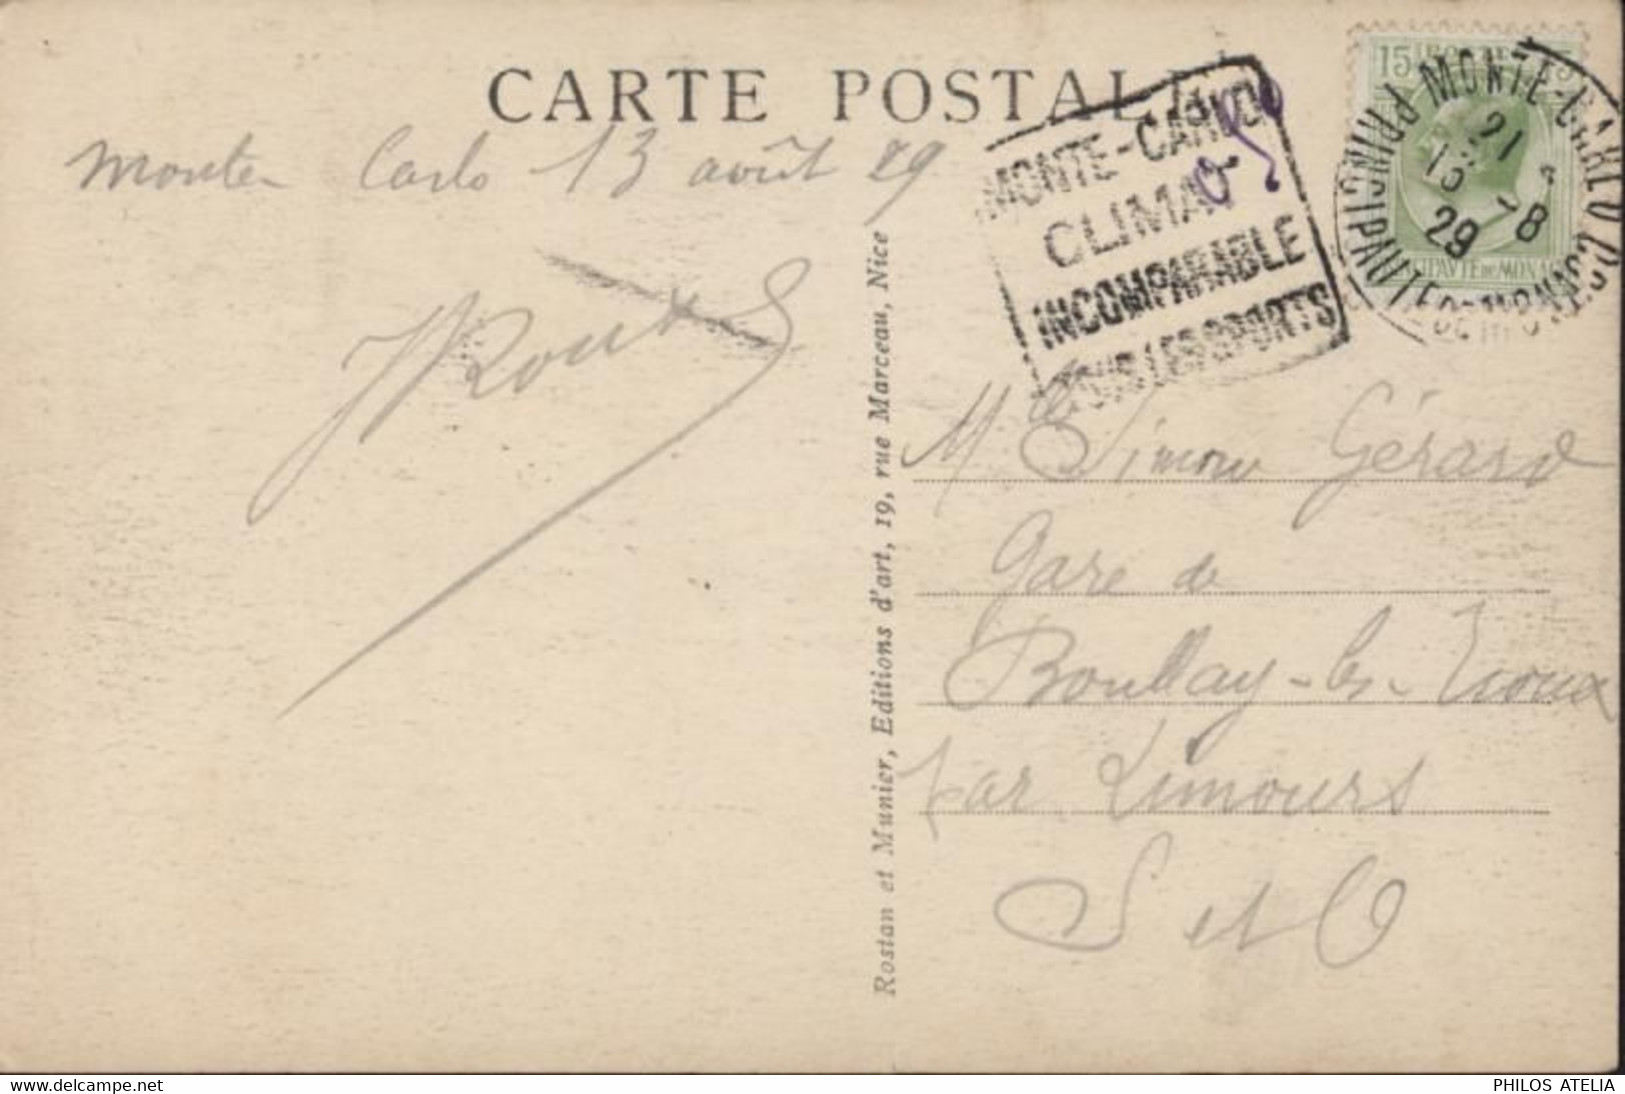 CARTE POSTALE
Monte Carlo 13 août 29
MONTE-CARLO
CLIMAT
INCOMPARABLE
TOUS LES SPORTS
15 15
MONTE-CARLO
PRINCIPAUTÉ DE MONACO
21
13 -8
29
Rostan et Munier, Editions d'art, 19, rue Marceau, Nice
Mlle Simone Gérard
Gare de
Boullay-les-Troux
par Limours
S et O
www.delcampe.net
PHILOS ATELIA